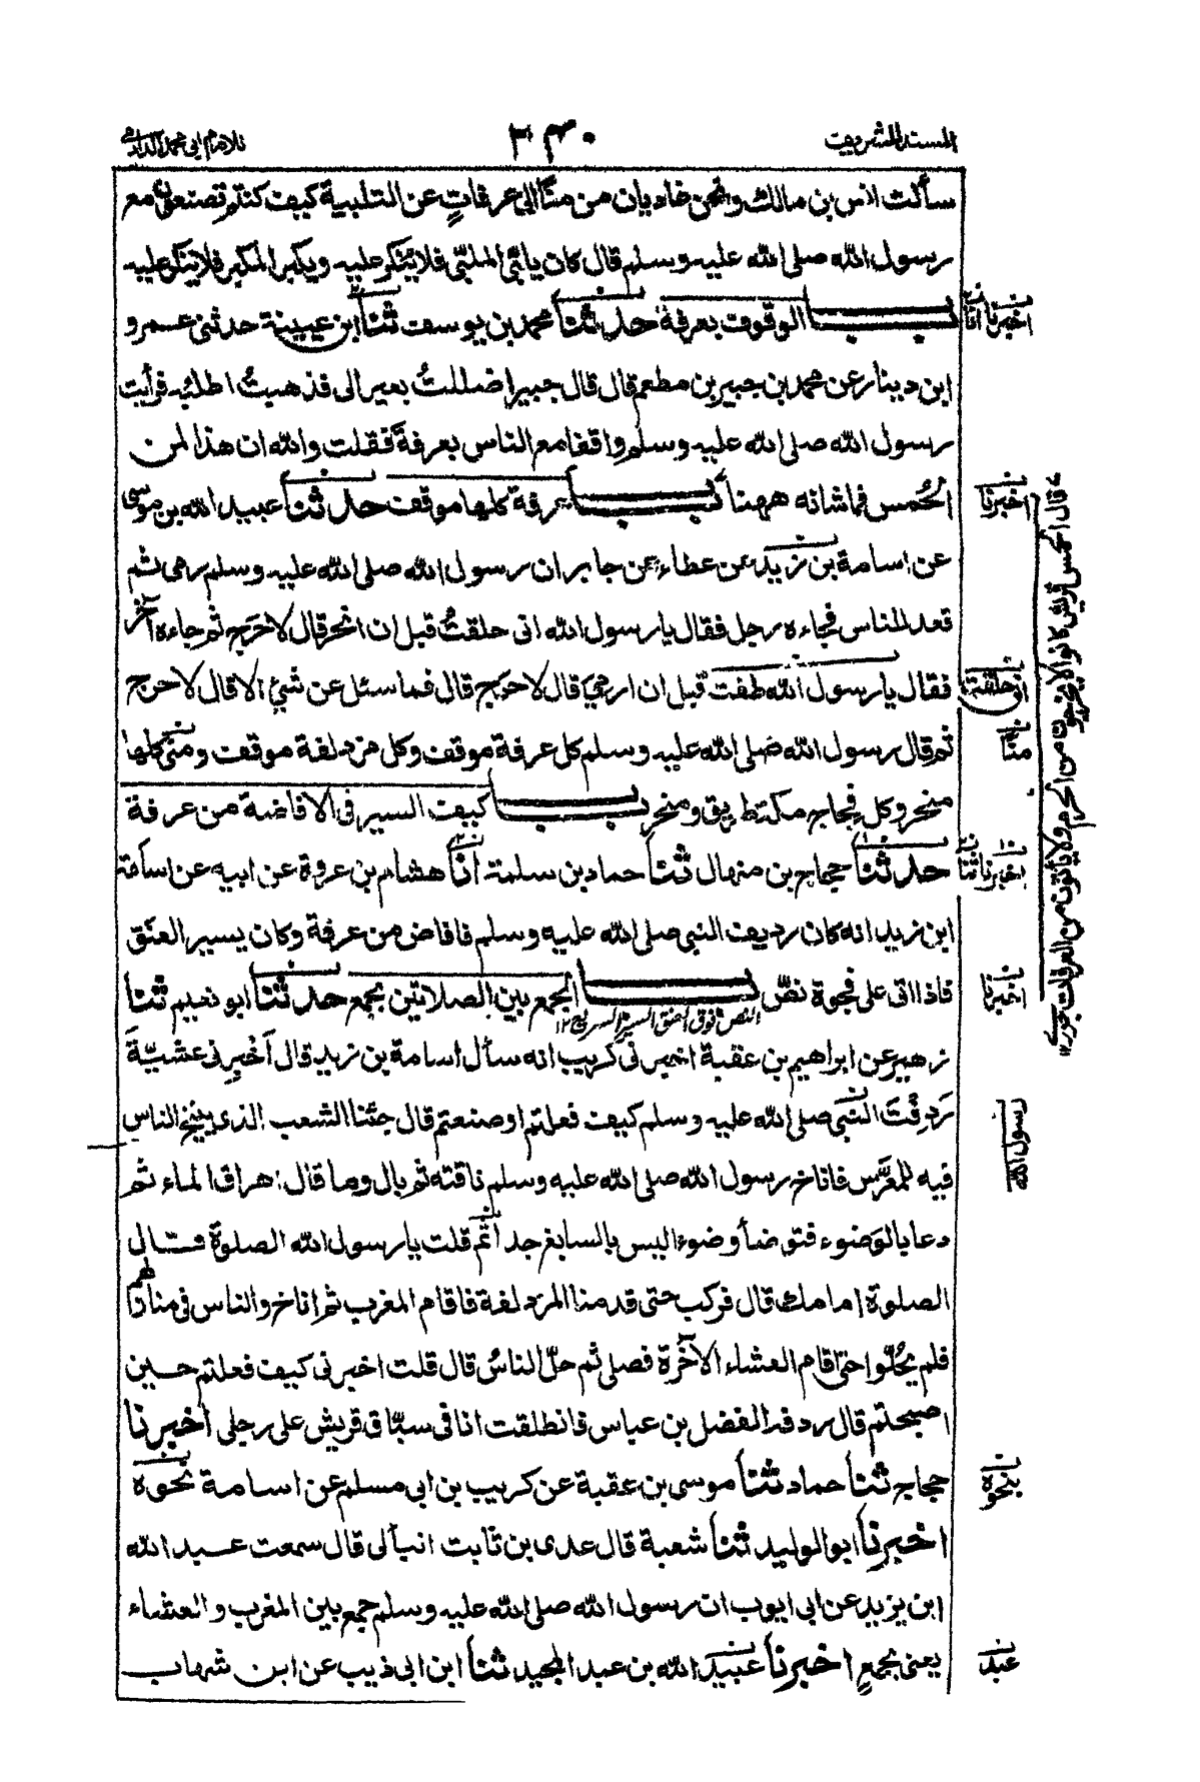 المسند الشريف ٢٤٠ للامام ابي محمد الدارمي
سألت انس بن مالك ونحن غاديان من منًا الى عرفاتٍ عن التلبية كيف كنتم تصنعون مع
رسول الله صلى الله عليه وسلم قال كان يلبّى الملبّى فلا ينكر عليه ويكبر المكبر فلا ينكر عليه
بــاب الوقوف بعرفة حدثنا محمد بن يوسف ثنا ابن عيينة حدثنى عمرو
ابن دينار عن محمد بن جبير بن مطعم قال قال جبير اضللتُ بعير الى فذهبتُ اطلبه فرأيت
رسول الله صلى الله عليه وسلم واقفا مع الناس بعرفةَ فقلت والله ان هذا لمن
الحُمس فما شانه ههنا بــاب عرفة كلها موقف حدثنا عبيد الله بن موسى
عن اسامة بن زيد عن عطاء عن جابر ان رسول الله صلى الله عليه وسلم رمى ثم
قعد للناس فجاءه رجل فقال يا رسول الله انى حلقتُ قبل ان انحر قال لا حرج ثم جاءه آخر
فقال يا رسول الله طفت قبل ان ارمى قال لا حرج قال فما سئل عن شئ الا قال لا حرج
ثم قال رسول الله صلى الله عليه وسلم كل عرفة موقف وكل مزدلفة موقف ومنى كلها
منحر وكل فجاج مكة طريق ومنحر بــاب كيف السير فى الافاضة من عرفة
حدثنا حجاج بن منهال ثنا حماد بن سلمة انا هشام بن عروة عن ابيه عن اسامة
ابن زيد انه كان رديف النبى صلى الله عليه وسلم فافاض من عرفة وكان يسير العنق
فاذا اتى على فجوة نصّ بــاب الجمع بين الصلاتين بجمع حدثنا ابو نعيم ثنا
النص فوق العنق السير السريع ١٢
زهير عن ابراهيم بن عقبة اخبرنى كريب انه سأل اسامة بن زيد قال اخبِرنى عشيّةَ
رَدِفْتَ النبى صلى الله عليه وسلم كيف فعلتم او صنعتم قال جئنا الشعب الذى ينيخ الناس
فيه للمعرَّس فاناخ رسول الله صلى الله عليه وسلم ناقته ثم بال وما قال اهراق الماء ثم
دعا بالوَضوء فتوضأ وضوءا ليس بالسابغ جدا ثم قلت يا رسول الله الصلوة قال
الصلوة امامك قال فركب حتى قدمنا المزدلفة فاقام المغرب ثم اناخ والناس فى منازلهم
فلم يحُلّوا حتى اقام العشاء الآخرة فصلى ثم حلّ الناسُ قال قلت اخبرنى كيف فعلتم حين
اصبحتم قال ردفه الفضل بن عباس فانطلقت انا فى سبّاق قريش على رجلى اخبرنا
حجاج ثنا حماد ثنا موسى بن عقبة عن كريب بن ابى مسلم عن اسامة نحوه
اخبرنا ابو الوليد ثنا شعبة قال عدى بن ثابت انبأنى قال سمعت عبد الله
ابن يزيد عن ابى ايوب ان رسول الله صلى الله عليه وسلم جمع بين المغرب والعشاء
يعنى بجمعٍ اخبرنا عبيد الله بن عبد المجيد ثنا ابن ابى ذيب عن ابن شهاب
اخبرنا انا
اخبرنا
انى حلقت
منًا
اخبرنا ثنا
اخبرنا
رسول الله
بنحوه
عبد
قال الحمس قريش كانوا لا يخرجون من الحرم ولا يأتون من العرفات